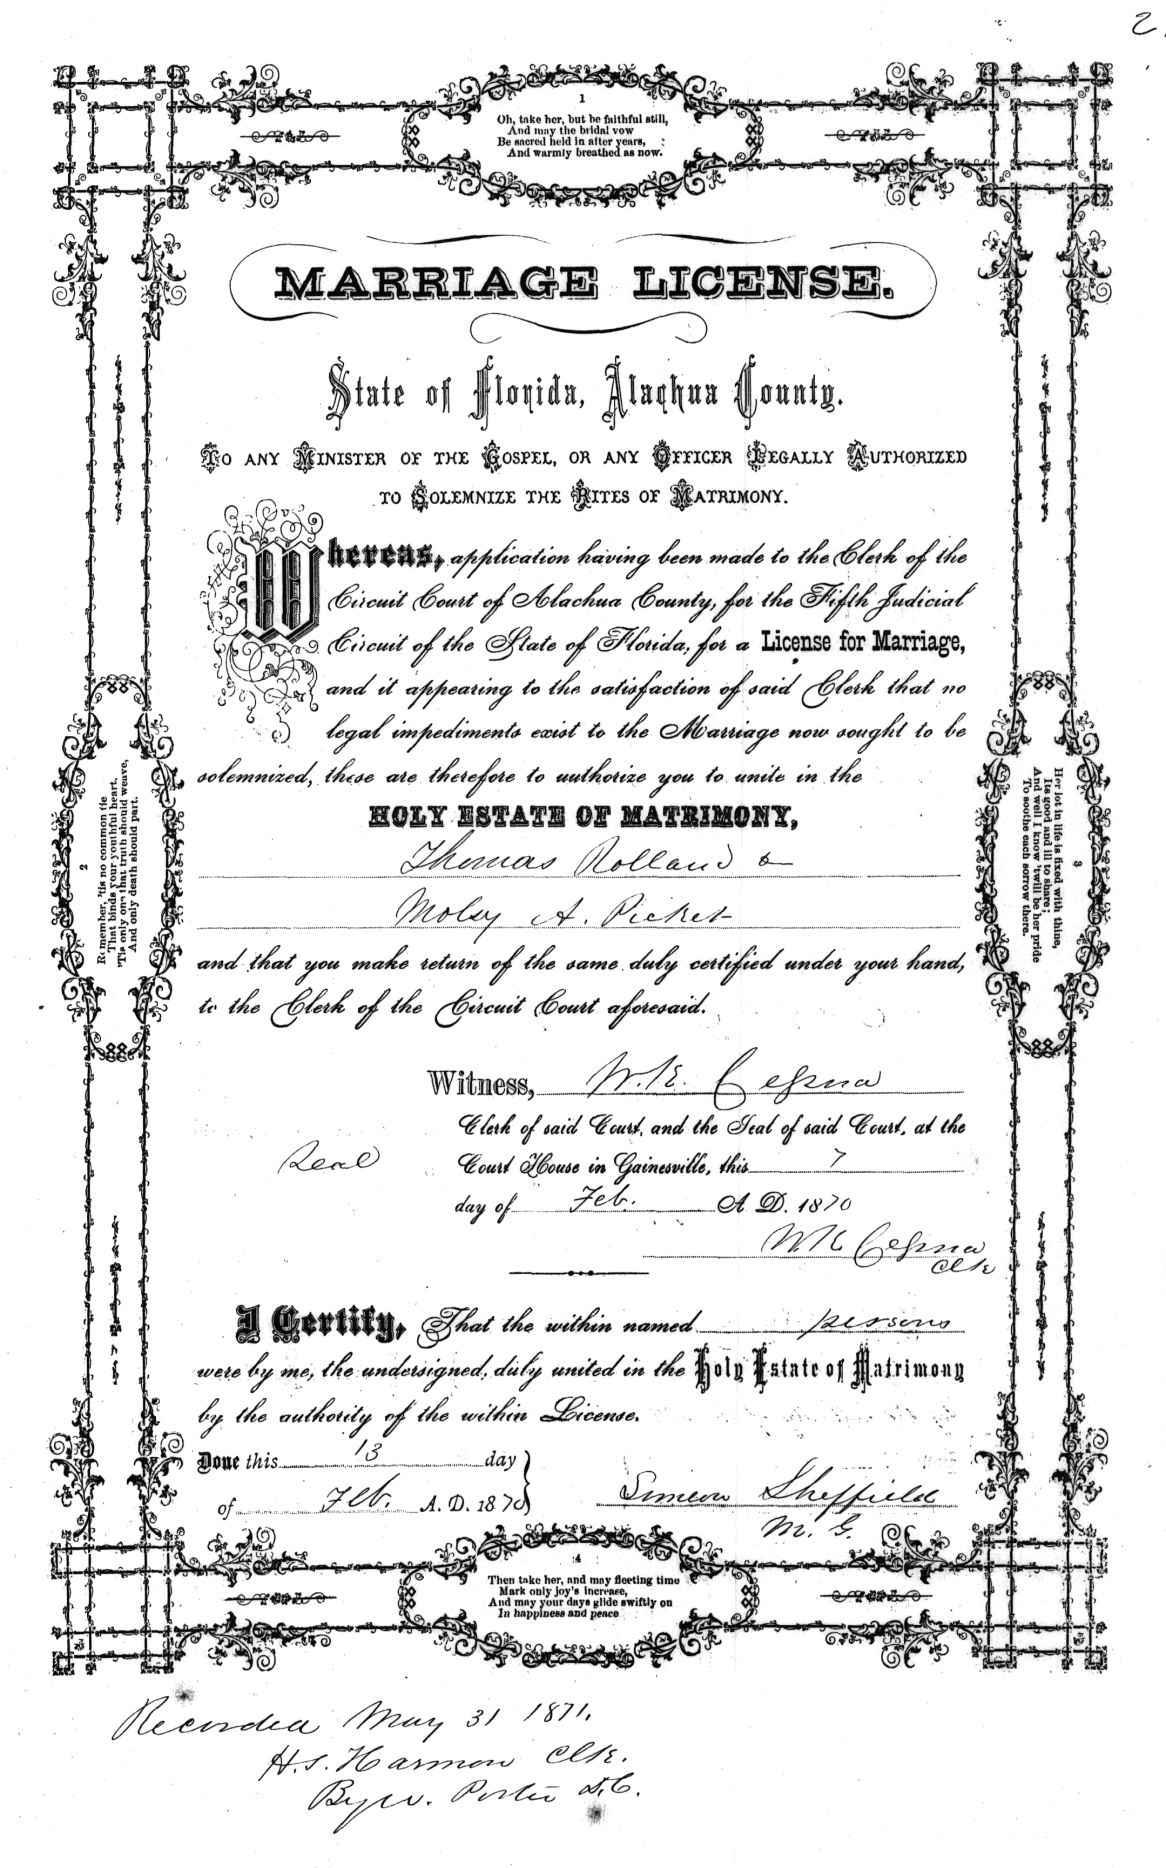 2.
1
Oh, take her, but be faithful still,
And may the bridal vow
Be sacred held in after years,
And warmly breathed as now.
MARRIAGE LICENSE.
State of Florida, Alachua County.
TO ANY MINISTER OF THE GOSPEL, OR ANY OFFICER LEGALLY AUTHORIZED
TO SOLEMNIZE THE RITES OF MATRIMONY.
Whereas, application having been made to the Clerk of the
Circuit Court of Alachua County, for the Fifth Judicial
Circuit of the State of Florida, for a License for Marriage,
and it appearing to the satisfaction of said Clerk that no
legal impediments exist to the Marriage now sought to be
solemnized, these are therefore to authorize you to unite in the
HOLY ESTATE OF MATRIMONY,
Thomas Rolland &
Molsy A. Picket
and that you make return of the same duly certified under your hand,
to the Clerk of the Circuit Court aforesaid.
2
Remember, 'tis no common tie
That binds your youthful heart,
'Tis only one that truth should weave,
And only death should part.
3
Her lot in life is fixed with thine,
Its good and ill to share;
And well I know 'twill be her pride
To soothe each sorrow there.
Witness, W. K. Cessna
Clerk of said Court, and the Seal of said Court, at the
Seal
Court House in Gainesville, this 7
day of Feb. A. D. 1870
W K Cessna
Clk
I Certify, That the within named persons
were by me, the undersigned, duly united in the Holy Estate of Matrimony
by the authority of the within License.
Done this 13 day
of Feb. A. D. 1870
Simeon Sheffield
M. G.
4
Then take her, and may fleeting time
Mark only joy's increase,
And may your days glide swiftly on
In happiness and peace
Recorded May 31 1871.
H. S. Harmon Clk.
By W. Porter D.C.